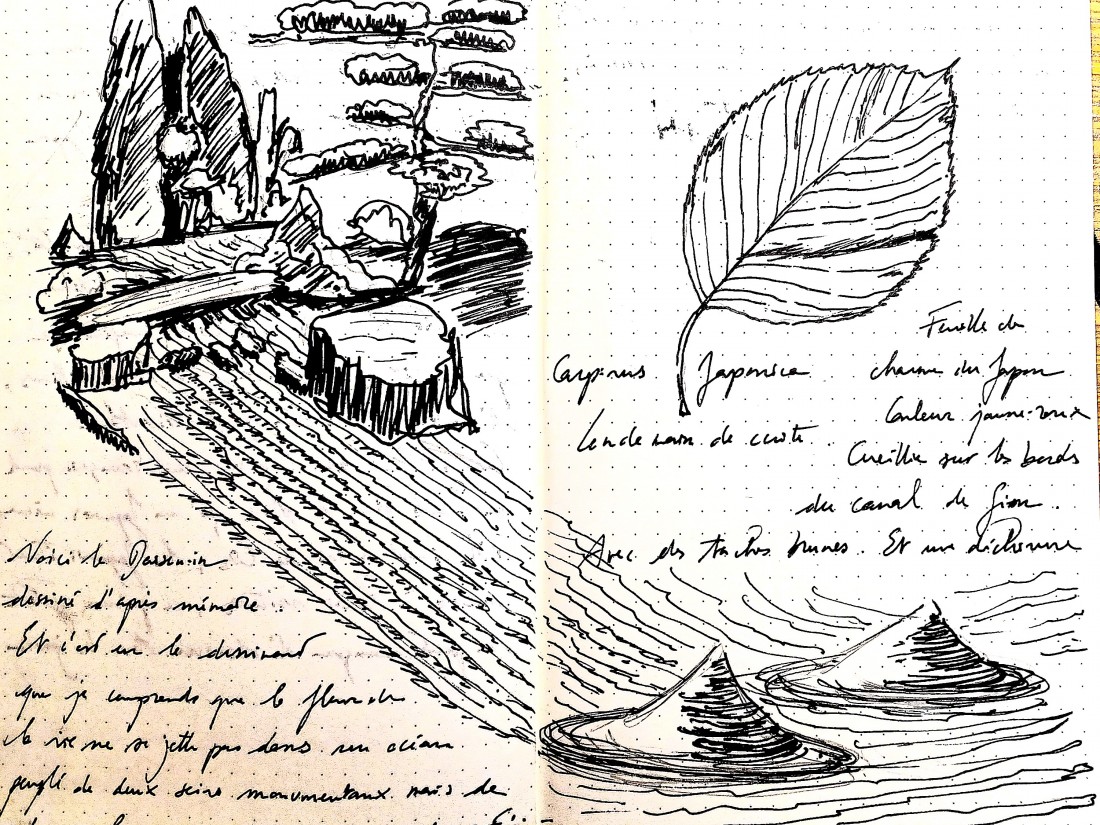 Voici le Daisen-in
dessiné d'après mémoire
Et c'est en le dessinant
que je comprends que le fleuve de
la vie ne se jette pas dans un océan
peuplé de deux seins monumentaux mais de
Feuille de
Carpinus Japonica charme du Japon
Couleur jaune-roux
Lendemain de cuite.
Cueillie sur les bords
du canal de Gion.
Avec des taches brunes. Et une déchirure